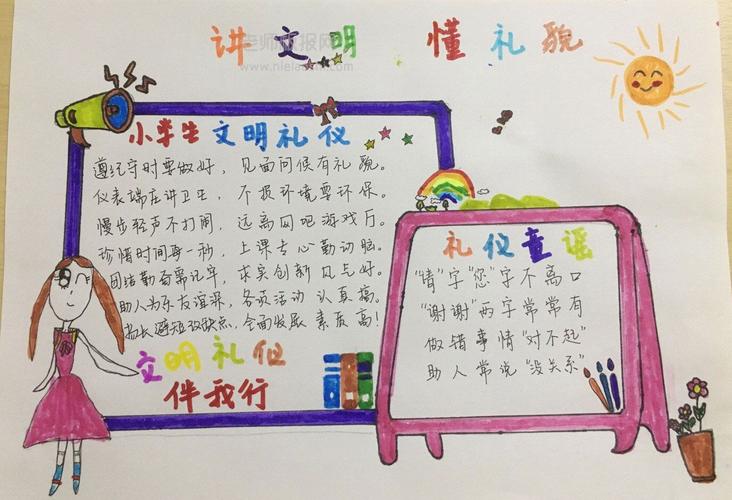 讲文明 懂礼貌
老师板报网
小学生文明礼仪
遵纪守时要做好，见面问候有礼貌。
仪表端庄讲卫生，不损环境要环保。
慢步轻声不打闹，远离网吧游戏厅。
珍惜时间每一秒，上课专心勤动脑。
团结勤奋需记牢，求实创新风气好。
助人为乐友谊深，各项活动认真搞。
扬长避短改缺点，全面发展素质高！
文明礼仪
伴我行
礼仪童谣
"情"字"您"字不离口
"谢谢"两字常常有
做错事情"对不起"
助人常说"没关系"